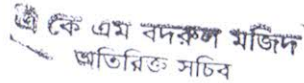 এ কে এম বদরুল মজিদ
অতিরিক্ত সচিব